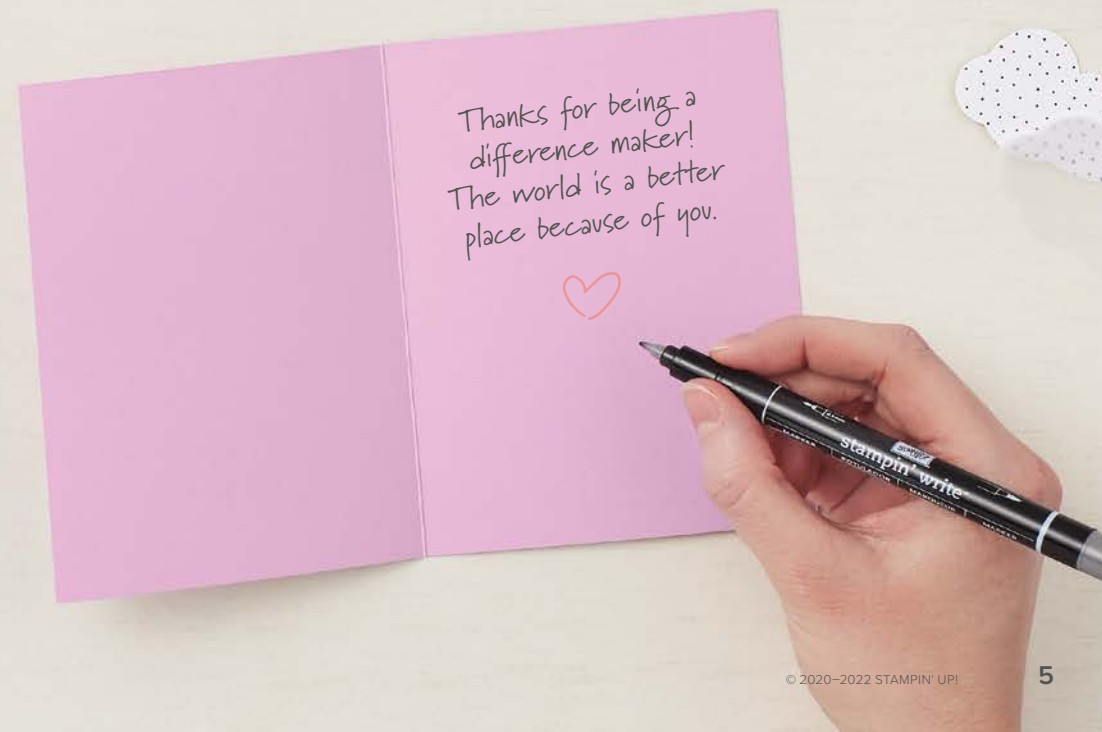 Thanks for being a
difference maker!
The world is a better
place because of you.
stampin' write
MARKER
© 2020–2022 STAMPIN' UP!
5